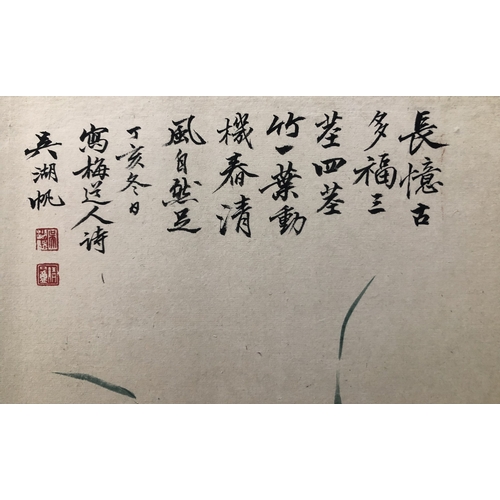 長憶古
多福三
莖四莖
竹一葉動
機春清
風自然足
丁亥冬日
寫梅道人詩
吳湖帆